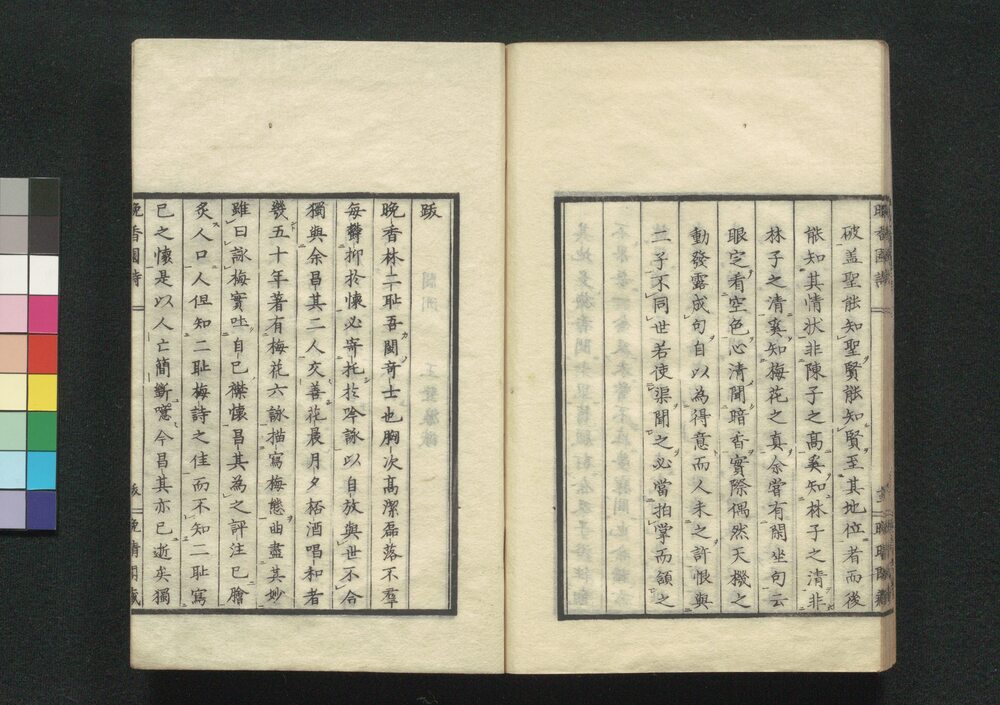 破盖聖能知聖賢能知賢至其地位者而後
能知其情状非陳子之髙奚知林子之清非
林子之清奚知梅花之真余嘗有閑坐句云
眼定看空色心清聞暗香實際偶然天機之
動發露成句自以為得意而人未之許恨與
二子不同世若使渠聞之必當拍掌而頷之
跋
晩香林二耻吾閩竒士也胸次高潔磊落不羣
每欝抑於懐必寄托於吟詠以自放與世不合
獨與余昌其二人交善花晨月夕桮酒唱和者
㡬五十年著有梅花六詠描寫梅態曲盡其妙
雖曰詠梅實吐自己襟懐昌其為之評注已膾
炙人口人但知二耻梅詩之佳而不知二耻寫
己之懐是以人亡簡斷噫今昌其亦已逝矣獨
晩香園詩
跋